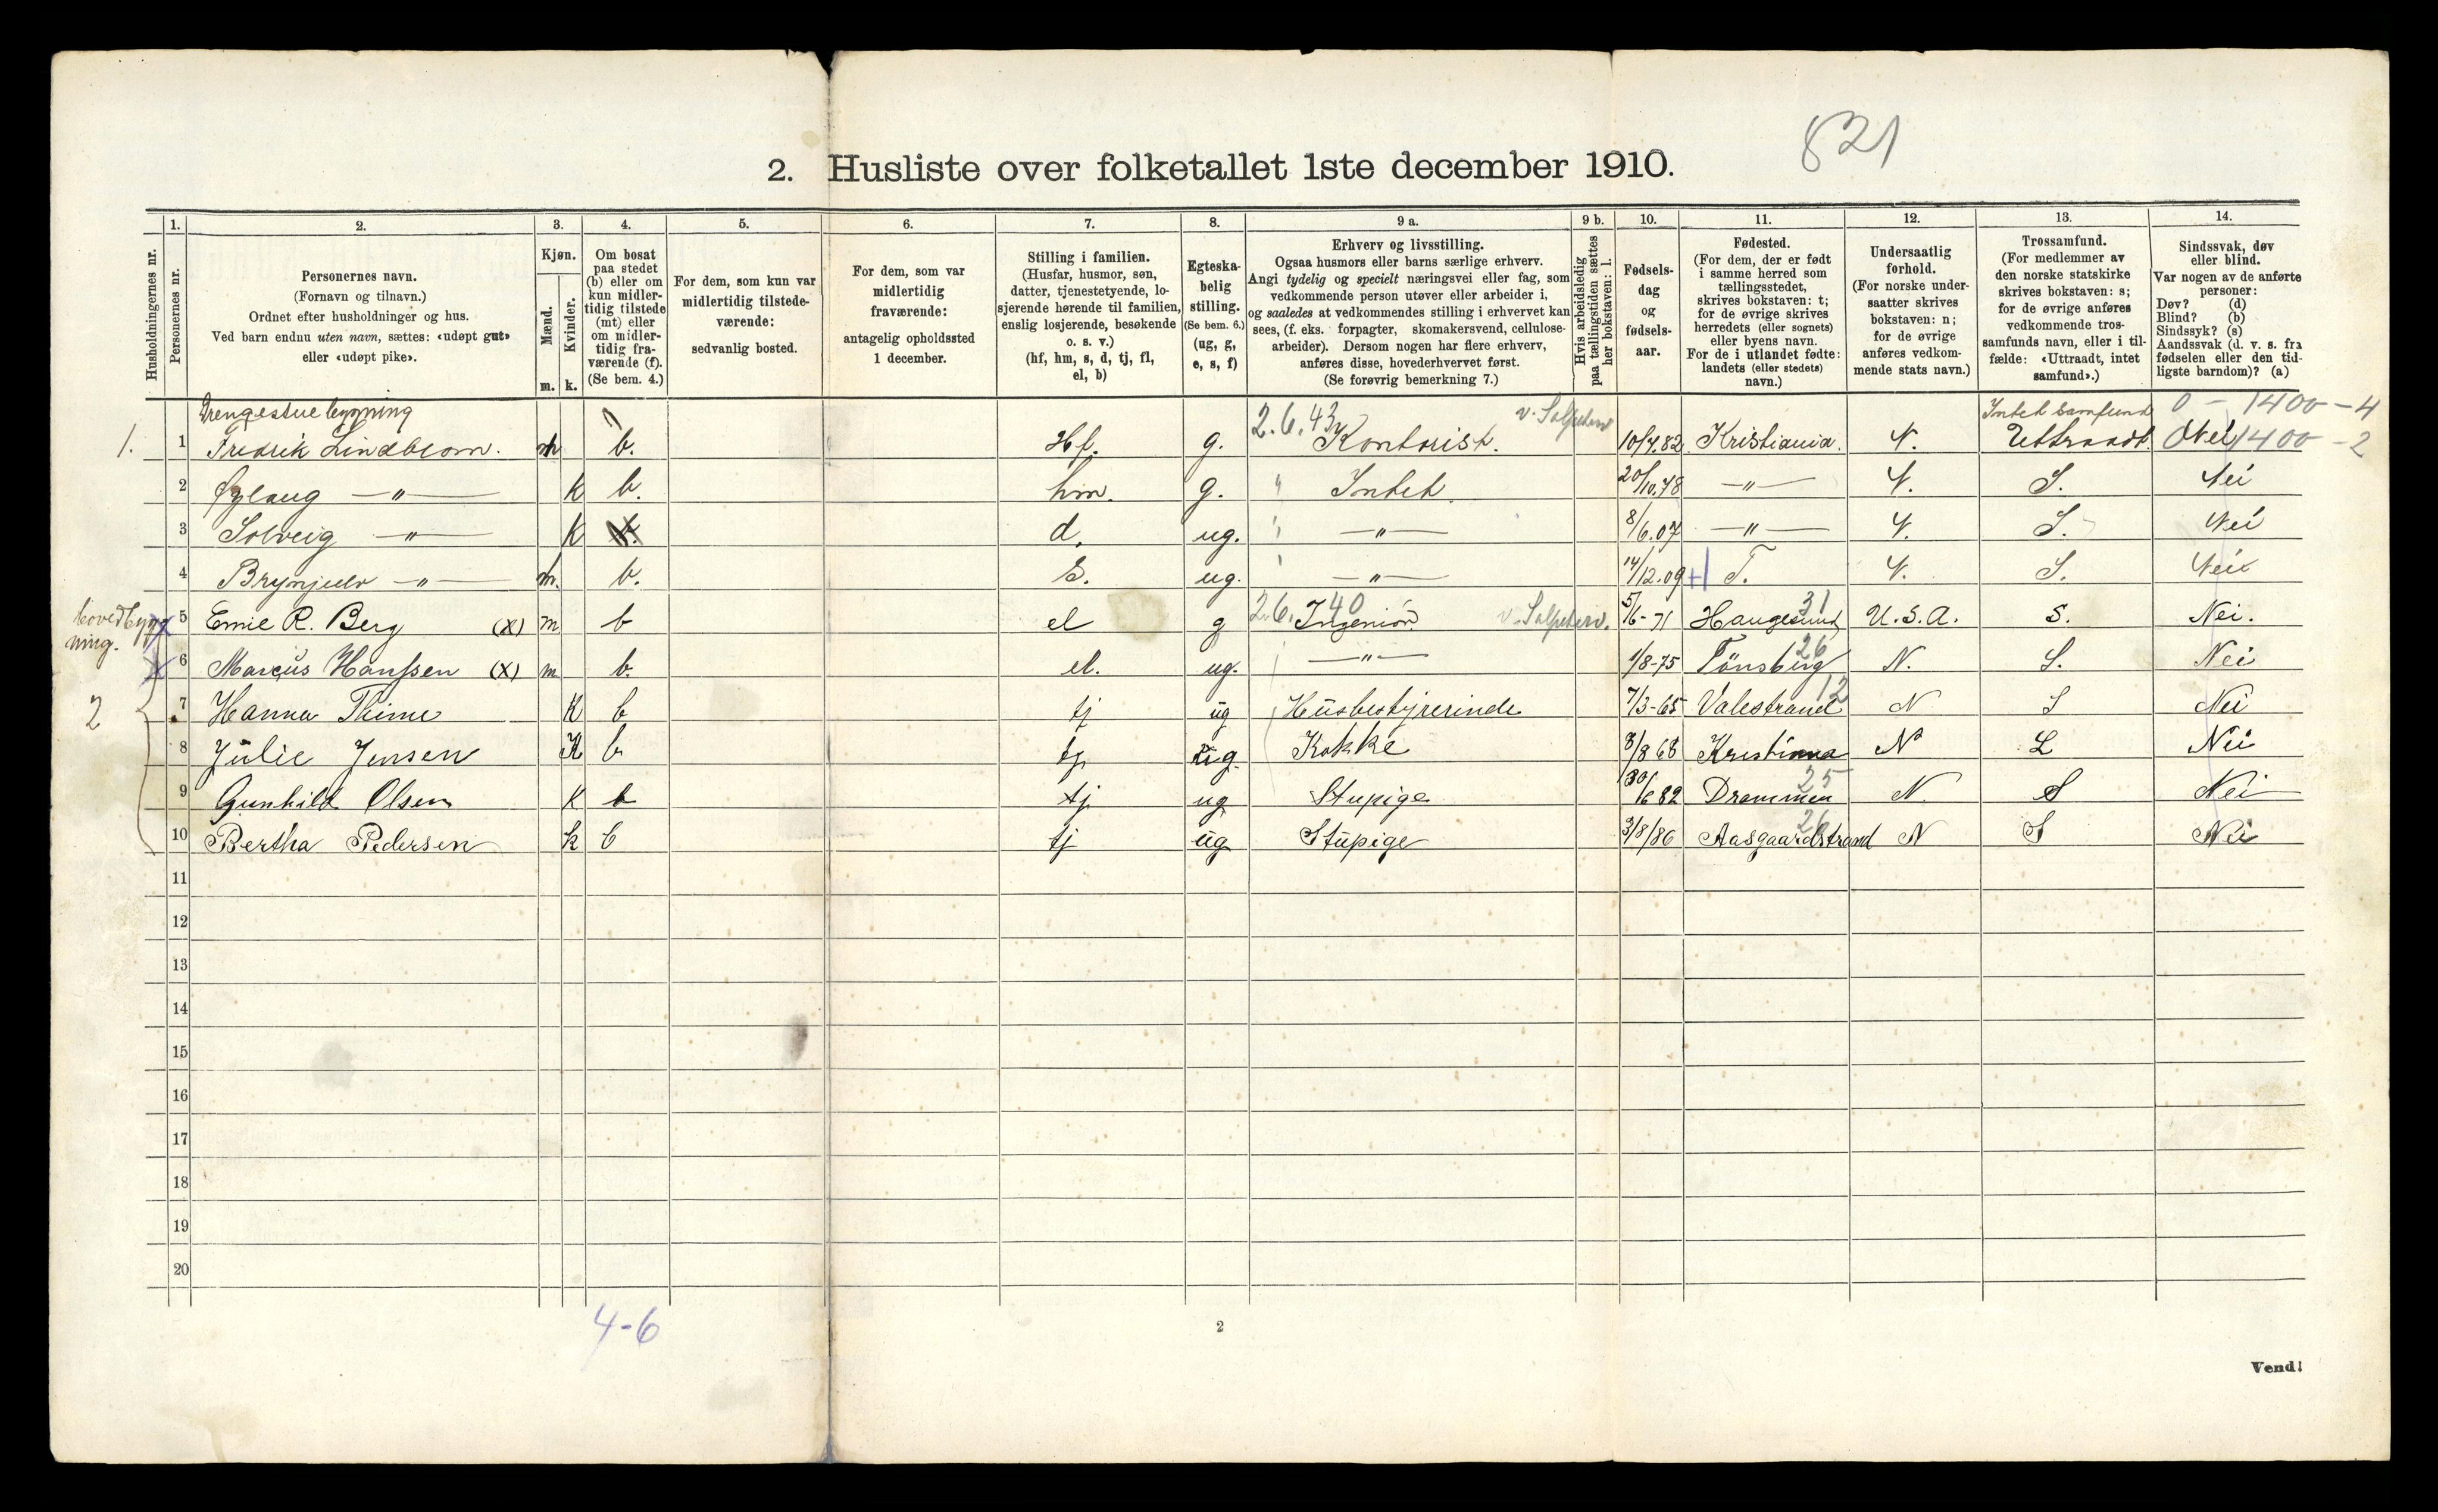 821
2. Husliste over folketallet 1ste december 1910.
Husholdningernes nr.
1.
Personernes nr.
2.
Personernes navn.
(Fornavn og tilnavn.)
Ordnet efter husholdninger og hus.
Ved barn endnu uten navn, sættes: «udøpt gut»
eller «udøpt pike».
3.
Kjøn.
Mænd.
Kvinder.
m. k.
4.
Om bosat
paa stedet
(b) eller om
kun midler-
tidig tilstede
(mt) eller
om midler-
tidig fra-
værende (f).
(Se bem. 4.)
5.
For dem, som kun var
midlertidig tilstede-
værende:
sedvanlig bosted.
6.
For dem, som var
midlertidig
fraværende:
antagelig opholdssted
1 december.
7.
Stilling i familien.
(Husfar, husmor, søn,
datter, tjenestetyende, lo-
sjerende hørende til familien,
enslig losjerende, besøkende
o. s. v.)
(hf, hm, s, d, tj, fl,
el, b)
8.
Egteska-
belig
stilling.
(Se bem. 6.)
(ug, g,
e, s, f)
9 a.
Erhverv og livsstilling.
Ogsaa husmors eller barns særlige erhverv.
Angi tydelig og specielt næringsvei eller fag, som
vedkommende person utøver eller arbeider i,
og saaledes at vedkommendes stilling i erhvervet kan
sees, (f. eks. forpagter, skomakersvend, cellulose-
arbeider). Dersom nogen har flere erhverv,
anføres disse, hovederhvervet først.
(Se forøvrig bemerkning 7.)
9 b.
Hvis arbeidsledig
paa tællingstiden sættes
her bokstaven: l.
10.
Fødsels-
dag
og
fødsels-
aar.
11.
Fødested.
(For dem, der er født
i samme herred som
tællingsstedet,
skrives bokstaven: t;
for de øvrige skrives
herredets (eller sognets)
eller byens navn.
For de i utlandet fødte:
landets (eller stedets)
navn.)
12.
Undersaatlig
forhold.
(For norske under-
saatter skrives
bokstaven: n;
for de øvrige
anføres vedkom-
mende stats navn.)
13.
Trossamfund.
(For medlemmer av
den norske statskirke
skrives bokstaven: s;
for de øvrige anføres
vedkommende tros-
samfunds navn, eller i til-
fælde: «Uttraadt, intet
samfund».)
14.
Sindssvak, døv
eller blind.
Var nogen av de anførte
personer:
Døv? (d)
Blind? (b)
Sindssyk? (s)
Aandssvak (d. v. s. fra
fødselen eller den tid-
ligste barndom)? (a)
Drengestue bygning 2.6.43 v. Salpeterv Intet samfund 0 - 1400 - 4
1. 1 Fredrik Lindblom. m b. Hf. g. Kontorist. 10/7.82 Kristiania. N. Uttraadt. Nei 1400 - 2
2 —"— K b. hm. g. " Intet. 20/10.78 —"— N. S. Nei
3 Solveig —"— K d. ug. " —"— 8/6.07 —"— N. S. Nei
4 Brynjulv —"— m. b. S. ug. " —"— 14/12.09 +1 T. N. S. Nei
hovedbyg-
ning.
5 Emil R. Berg (x) m b el g 2.6.40 Ingeniør v. Salpeterv. 5/6-71 Haugesund 31 U.S.A. S. Nei.
6 Marcus Hanssen (x) m b. el. ug. —"— 1/8-75 Tönsberg 26 N. S. Nei
2 7 Hanna Thime K b tj ug Husbestyrerinde 7/3-65 Valestrand 12 N S Nei
8 Julie Jensen K b tj ug. Kokke 8/8 68 Kristiania N Nei
9 Gunhild Olsen K b tj ug Stupige 30/6 82 Drammen 25 N. S Nei
10 Bertha Pedersen k b tj ug Stupige 3/8/86 Aasgaardstrand 26 N S Nei
11
12
13
14
15
16
17
18
19
20
4-6
2
Vend!